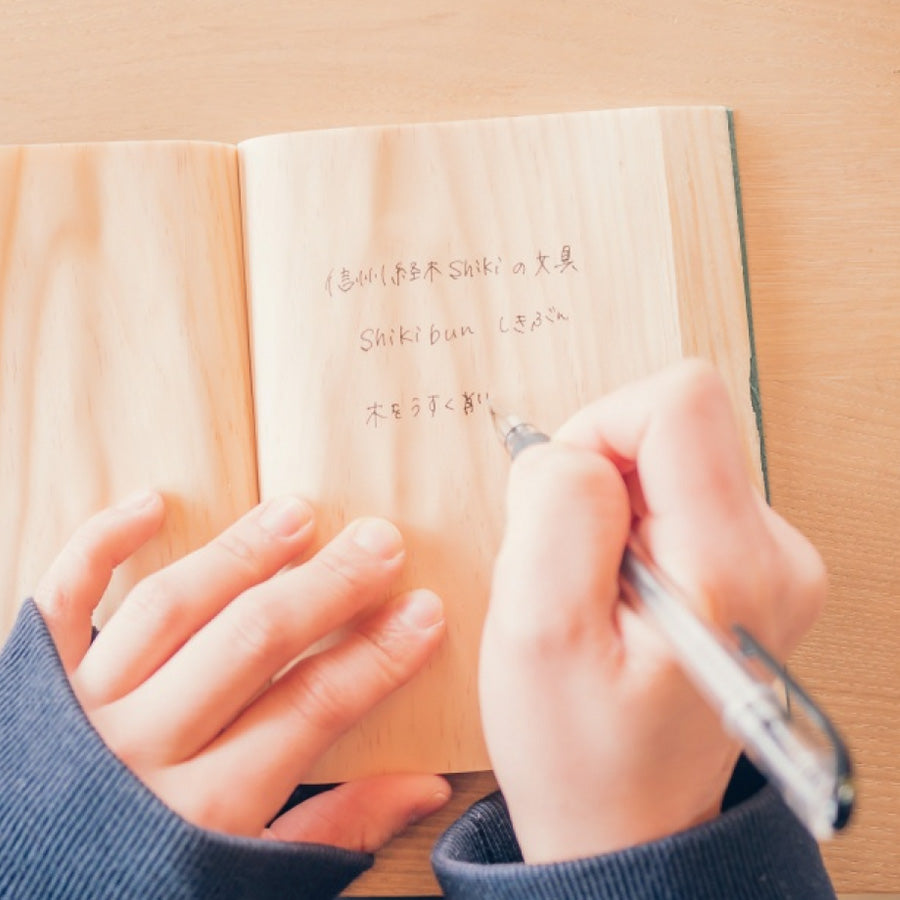 信州経木Shikiの文具
Shikibun しきぶん
木をうすく削い